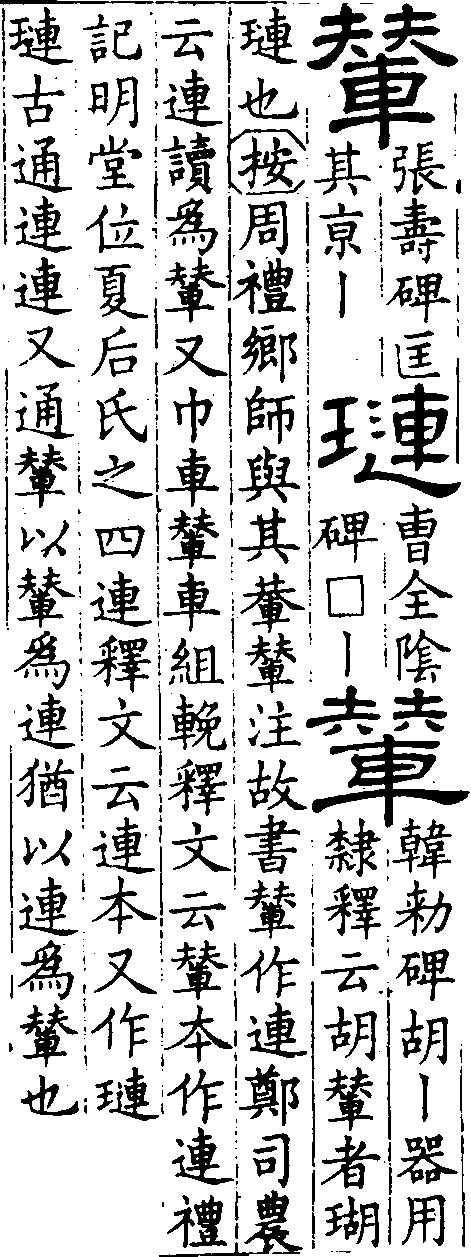 輦張壽碑匡其亰丨璉曹全陰碑□丨輦韓勑碑胡丨器用隸釋云胡輦者瑚
璉也按周禮鄉師與其輂輦注故書輦作連鄭司農
云連讀爲輦又巾車輦車組輓釋文云輦本作連禮
記明堂位夏后氏之四連釋文云連本又作璉
璉古通連連又通輦以輦爲連猶以連爲輦也